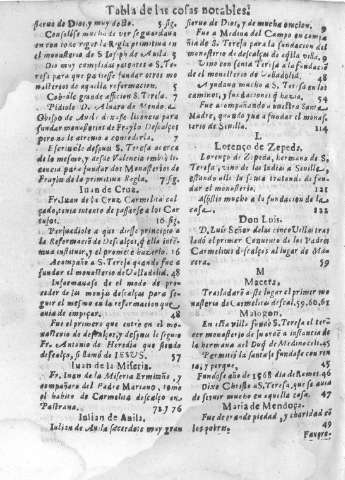 Tabla de las cosas notables.
sieruo de Dios, y muy docto. 5. sig.
Consolóse mucho de ver se guardaua
en todo rigor la Regla primitiua en
el monasterio de S. Ioseph de Auila. 5
Dio muy cumplidas patentes a S. Te
resa para que pudiesse fundar otros mo
nasterios de aquella reformacion. 5
Cobróle grande aficion S. Teresa. 5
Pidiole D. Aluaro de Mendoça
Obispo de Auil. diesse licencia para
fundar monasterios de Frayles Descalços
pero no se atreuio a darla. 7
Escriuele despues S. Teresa acerca
de lo mesmo, y desde Valencia embia li-
cencia para fundar dos Monasterios de
Frayles de la primitiua Regla. 7. sig.
Iuan de Cruz.
Fr. Iuan de la Cruz Carmelita cal
çado, tenia intento de passarse a los Car
tujos. 16. sig.
Persuadiole a que diesse principio a
la Reformacion de Descalços, que ella inte
ntaua instituyr, y el promete hazerlo. 16
Acompaño a S. Teresa quando fue a
fundar el monasterio de Valladolid. 48
Informauase de el modo de pro-
ceder de las monjas descalças para se-
guir el mesmo en la reformacion que
auia de empeçar. 48
Fue el primero que entró en el mo-
nasterio de descalços, y despues le siguio
Fr. Antonio de Heredia que siendo
descalço, se llamó de IESVS. 57
Iuan de la Miseria.
Fr. Iuan de la Miseria Ermitaño, y
compañero del Padre Mariano, tomo
el habito de Carmelita descalço en
Pastrana. 72. y 76
Iulian de Auila.
Iulian de Auila sacerdote muy gran
sieruo de Dios, y de mucha oracion. 9
Fue a Medina del Campo en compa
ñia de S. Teresa para la fundacion del
monasterio de descalças de aquella villa. 9
Vino con santa Teresa a la fundacion
de el monasterio de Valladolid. 48
Ayudaua mucho a S. Teresa en los
caminos, y fundaciones que hazia. 54
Fue acompañando a nuestra Santa
Madre, quando yua a fundar el monas-
terio de Seuilla. 114
L
Lorenço de Zepeda.
Lorenço de Zepeda, hermano de S.
Teresa, vino de las Indias a Seuilla,
estando alli la santa tratando de fun-
dar el monasterio. 121
Assistio mucho a la fundacion de
alla. 122
Don Luis.
D. Luis Señor de las cinco Villas tras
ladó el primer Conuento de los Padres
Carmelitas descalços al lugar de Man-
cera. 59
M
Macera.
Trasladaron a este lugar el primer mo
nasterio de Carmelitas descalços. 59, 60, 63
Malagon.
En esta villa fundó S. Teresa el tercer
monasterio de monjas a instancia de
la hermana del Duq de Medinaceli. 45
Permitio la santa se fundasse con ren
ta, y porque. 45
Fundose año de 1568 dia de Ramos. 46
Dixo Christo a S. Teresa, que se auia
de seruir mucho en aquella casa. 47
Maria de Mendoça.
Fue de grande piedad, y charidad con
los pobres. 49
Fauore-